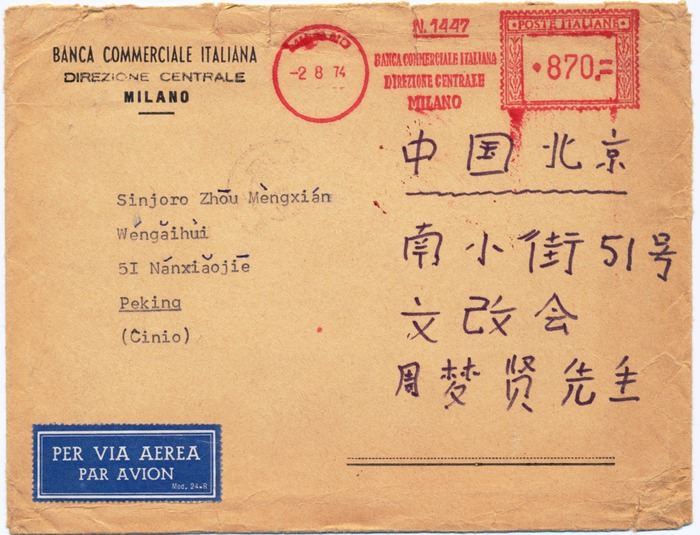 BANCA COMMERCIALE ITALIANA
DIREZIONE CENTRALE
MILANO
MILANO
-2 8 74
N. 1447
BANCA COMMERCIALE ITALIANA
DIREZIONE CENTRALE
MILANO
POSTE ITALIANE
870,=
中国北京
南小街51号
文改会
周梦贤先生
Sinjoro Zhōu Mèngxián
Wéngǎihùi
5I Nánxiǎojiē
Peking
(Ĉinio)
PER VIA AEREA
PAR AVION
Mod. 24-R